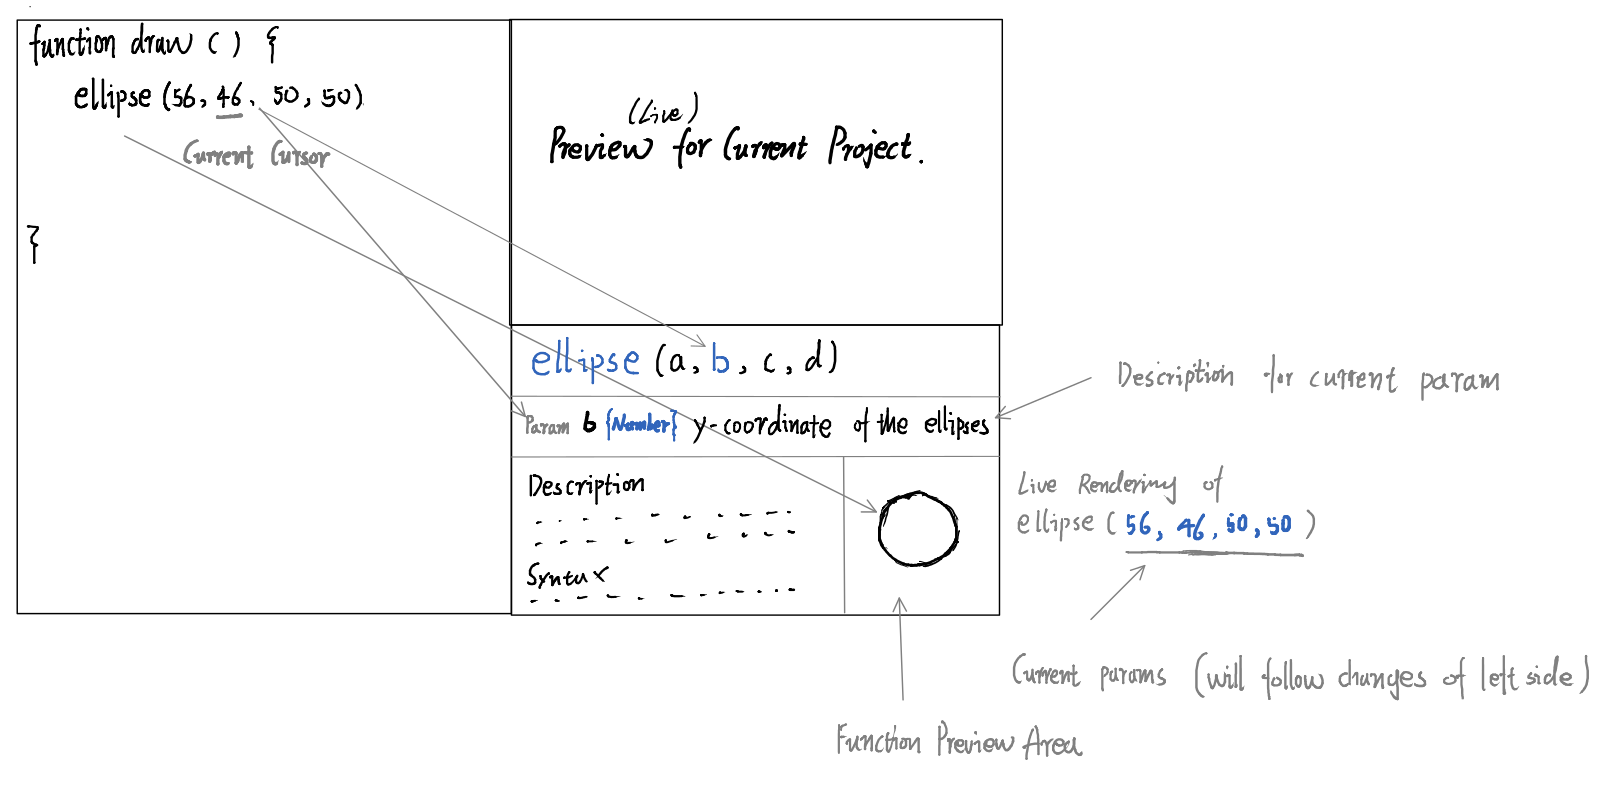 function draw ( ) {
ellipse (56, 46, 50, 50)
Current Cursor
}
(Live)
Preview for Current Project.
ellipse (a, b, c, d)
Param b {Number} y-coordinate of the ellipses
Description
Syntax
Description for current param
Live Rendering of
ellipse ( 56, 46, 50, 50 )
Current params (will follow changes of left side)
Function Preview Area